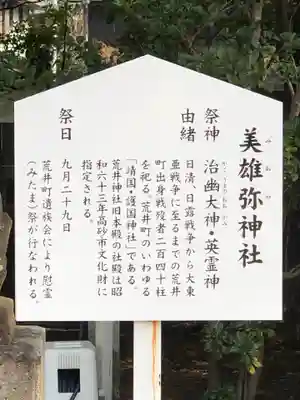 美雄弥神社
みおや
祭神 治幽大神・英霊神
由緒
日清、日露戦争から大東
亜戦争に至るまでの荒井
町出身戦歿者二百四十柱
を祀る、荒井町のいわゆる
「靖国・護国神社」である。
荒井神社旧本殿の社殿は昭
和六十三年高砂市文化財に
指定される。
祭日 九月二十九日
荒井町遺族会により慰霊
(みたま)祭が行なわれる。